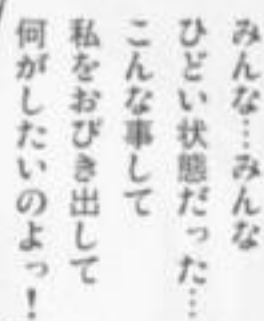 みんな…みんな
ひどい状態だった…
こんな事して
私をおびき出して
何がしたいのよっ！